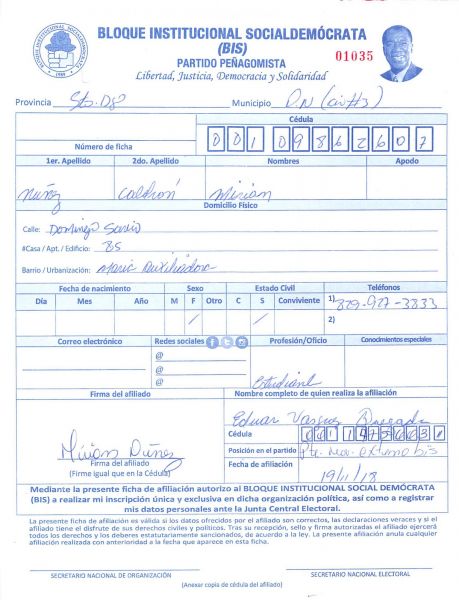 BLOQUE INSTITUCIONAL SOCIALDEMÓCRATA
(BIS)
PARTIDO PEÑAGOMISTA
Libertad, Justicia, Democracia y Solidaridad
01035
Provincia Sto. Dgo Municipio D.N (cir #3)
Cédula
Número de ficha 001 0986260 7
1er. Apellido 2do. Apellido Nombres Apodo
Nuñez Calderón Mirian
Domicilio Físico
Calle: Domingo Savio
#Casa / Apt. / Edificio: 85
Barrio / Urbanización: Maria Auxiliadora
Fecha de nacimiento Sexo Estado Civil Teléfonos
Día Mes Año M F Otro C S Conviviente 1) 829-927-3833
/ / 2)
Correo electrónico Redes sociales Profesión/Oficio Conocimientos especiales
@
@
@
Estudiante
Firma del afiliado Nombre completo de quien realiza la afiliación
Eduar Vasquez
Cédula
Mirian Núñez
Posición en el partido
Firma del afiliado
(Firme igual que en la Cédula)
Fecha de afiliación 19/11/18
Mediante la presente ficha de afiliación autorizo al BLOQUE INSTITUCIONAL SOCIAL DEMÓCRATA
(BIS) a realizar mi inscripción única y exclusiva en dicha organización política, así como a registrar
mis datos personales ante la Junta Central Electoral.
La presente ficha de afiliación es válida si los datos ofrecidos por el afiliado son correctos, las declaraciones veraces y si el
afiliado tiene el disfrute de sus derechos civiles y políticos. Tras su recepción, sello y firma autorizadas el afiliado ejercerá
todos los derechos y los deberes estatutariamente sancionados, de acuerdo a la ley. La presente afiliación anula cualquier
afiliación realizada con anterioridad a la fecha que aparece en esta ficha.
SECRETARIO NACIONAL DE ORGANIZACIÓN SECRETARIO NACIONAL ELECTORAL
(Anexar copia de cédula del afiliado)